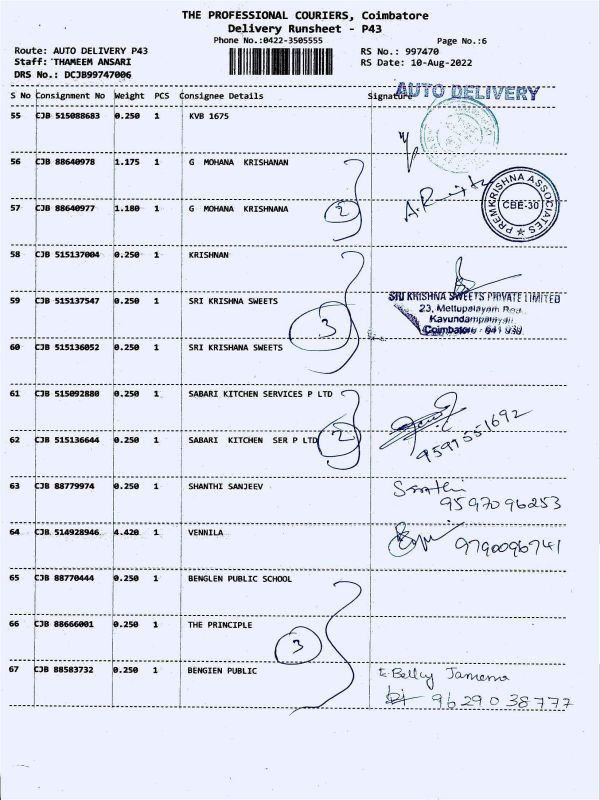 THE PROFESSIONAL COURIERS, Coimbatore
Delivery Runsheet - P43
Phone No.:0422-3505555
Page No.:6
Route: AUTO DELIVERY P43
RS No.: 997470
Staff: THAMEEM ANSARI
RS Date: 10-Aug-2022
DRS No.: DCJB99747006
AUTO DELIVERY
S No Consignment No Weight PCS Consignee Details Signature
55 CJB 515088683 0.250 1 KVB 1675
56 CJB 88640978 1.175 1 G MOHANA KRISHANAN
PREMKRISHNA ASSOCIATES
CBE-30
57 CJB 88640977 1.180 1 G MOHANA KRISHNANA
2
58 CJB 515137004 0.250 1 KRISHNAN
59 CJB 515137547 0.250 1 SRI KRISHNA SWEETS
SRI KRISHNA SWEETS PRIVATE LIMITED
23, Mettupalayam Road
Kavundampalayam
Coimbatore - 641 030
3
60 CJB 515136052 0.250 1 SRI KRISHANA SWEETS
61 CJB 515092880 0.250 1 SABARI KITCHEN SERVICES P LTD
62 CJB 515136644 0.250 1 SABARI KITCHEN SER P LTD
2
9591551692
63 CJB 88779974 0.250 1 SHANTHI SANJEEV
9597096253
64 CJB 514928946 4.420 1 VENNILA
9790096741
65 CJB 88770444 0.250 1 BENGLEN PUBLIC SCHOOL
66 CJB 88666001 0.250 1 THE PRINCIPLE
3
67 CJB 88583732 0.250 1 BENGIEN PUBLIC
9629038777